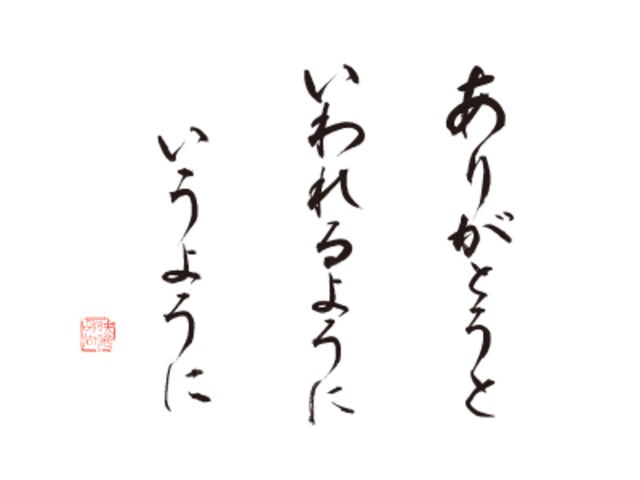 ありがとうと
いわれるように
いうように